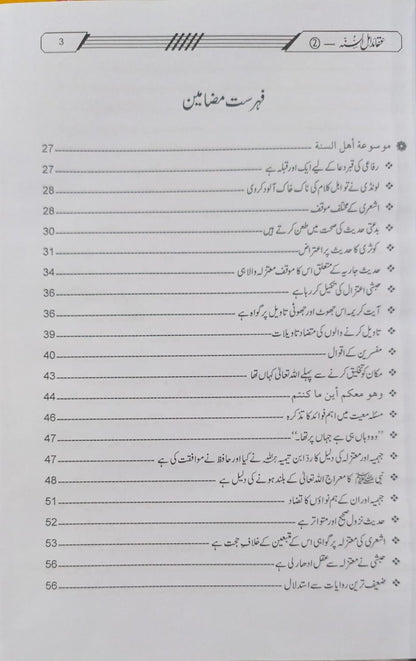 عقائد اہل السنہ — ② 3
فہرست مضامین
موسوعة أهل السنة 27
رفاعی کی قبر دعا کے لیے ایک اور قبلہ ہے 27
لونڈی نے تو اہل کلام کی ناک خاک آلود کر دی 28
اشعری کے مختلف موقف 28
بدعتی حدیث کی صحت میں طعن کرتے ہیں 30
کوثری کا حدیث پر اعتراض 31
حدیث جاریہ کے متعلق اس کا موقف معتزلہ والا ہی 34
حبشی اعتزال کی تکمیل کر رہا ہے 36
آیت کریمہ اس جھوٹ اور جھوٹی تاویل پر گواہ ہے 36
تاویل کرنے والوں کی متضاد تاویلات 39
مفسرین کے اقوال 40
مکان کو تخلیق کرنے سے پہلے اللہ تعالیٰ کہاں تھا 43
وهو معكم أين ما كنتم 44
مسئلہ معیت میں اہم فوائد کا تذکرہ 46
"وہ وہاں ہی ہے جہاں پر تھا۔" 47
جہمیہ اور معتزلہ کی دلیل کا رد ابن تیمیہ رحمہ اللہ نے کیا اور حافظ نے موافقت کی ہے 47
نبی ﷺ کا معراج اللہ تعالیٰ کے بلند ہونے کی دلیل ہے 48
جہمیہ اور ان کے ہم نواؤں کا تضاد 51
حدیث نزول صحیح اور متواتر ہے 52
اشعری کی معتزلہ پر گواہی اس کے متبعین کے خلاف حجت ہے 53
حبشی نے معتزلہ سے عقل ادھار لی ہے 56
ضعیف ترین روایات سے استدلال 56